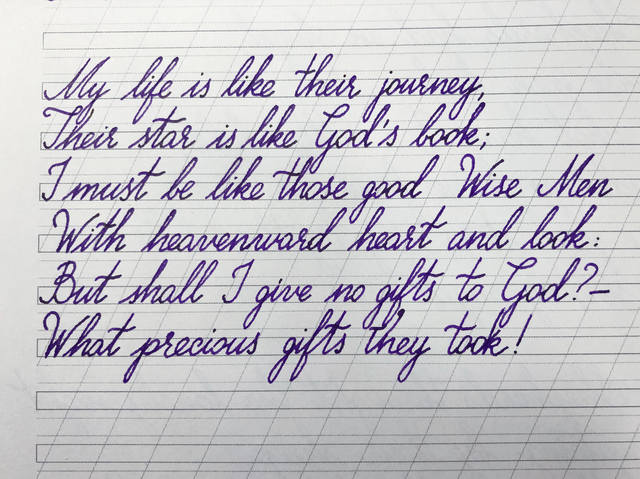 My life is like their journey,
Their star is like God's book;
I must be like those good Wise Men
With heavenward heart and look:
But shall I give no gifts to God?—
What precious gifts they took!